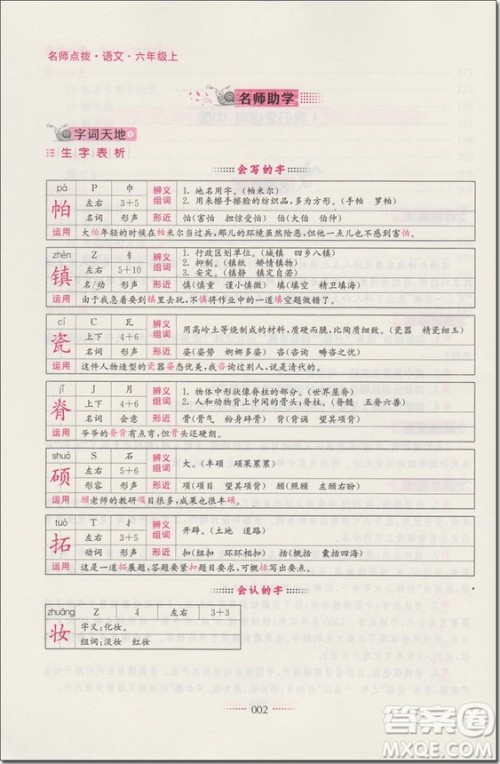 名师点拨·语文·六年级上
名师助学
字词天地
生字表析
会写的字
pà P 巾 辨义组词 1. 地名用字。(帕米尔)
帕 左右 3+5 2. 用来擦手擦脸的纺织品，多为方形。(手帕 罗帕)
名词 形声 形近 怕(害怕 担惊受怕) 伯(伯伯)
运用 大伯年轻的时候在帕米尔当过兵，那儿的环境虽然险恶，但他一点儿也不感到害怕。
zhèn Z 钅 辨义组词 1. 行政区划单位。(城镇 四乡八镇)
镇 左右 5+10 2. 抑制。(镇纸 矫情镇物)
3. 安定。(镇定 镇静)
名/动 形声 形近 慎(谨慎 谨言慎行) 填(填空 精卫填海)
运用 由于我虽然喜欢到镇里去玩，慎得将作业中的一道填空题都忘了做了。
cí C 瓦 辨义组词 用高岭土等烧制成的材料，质硬而脆，比陶质细致。(瓷器 精瓷细玉)
瓷 上下 4+6
名词 形声 形近 姿(姿势 婀娜多姿) 咨(咨询)
运用 这件人物造型的瓷器姿态优美，我咨询别人，说是清代的。
jǐ J 月 辨义组词 1. 物体中形状像脊柱的部分。(世界屋脊)
脊 上下 4+6 2. 人和动物背上中间的骨头；脊柱。(脊髓 脊梁)
名词 会意 形近 骨(骨气 粉身碎骨) 背(背诵 望其项背)
运用 爷爷的脊背有点弯，但骨头还硬朗。
shuò S 石 辨义组词 大。(丰硕 硕果累累)
硕 左右 5+6
形容 形声 形近 项(项目 望其项背) 顾(照顾 左顾右盼)
运用 顾老师的教研项目很大，成果也很丰硕。
tuò T 扌 辨义组词 开辟。(土地 道路)
拓 左右 3+5
动词 形声 形近 扣(纽扣 环环相扣) 括(概括 囊括四海)
运用 这是一道拓展题，答题要紧扣问题，概括地写出要点。
会认的字
zhuāng Z 丬 左右 3+3
妆 字义：化妆。
组词：淡妆 红妆
002
答案圈
MXQE.COM